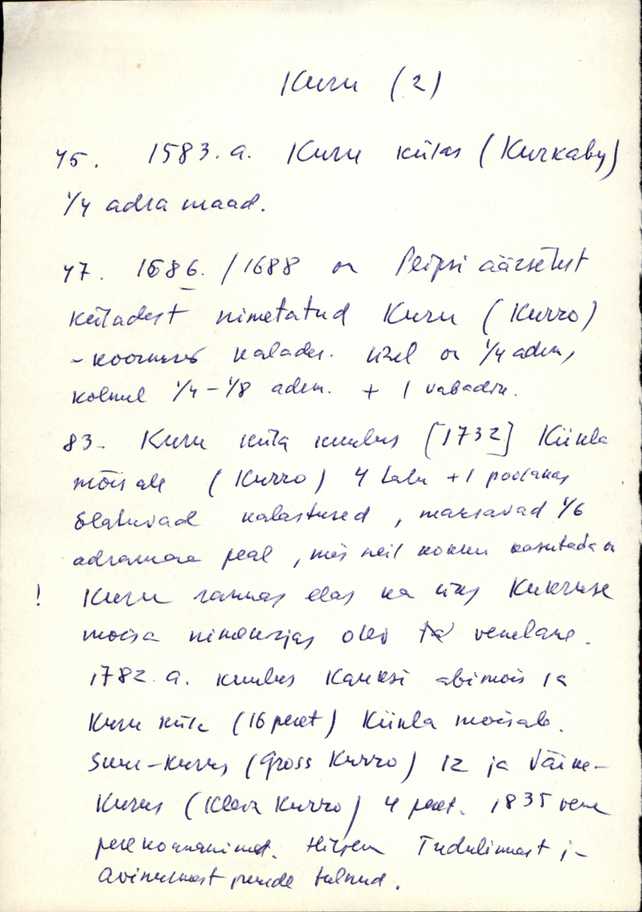 Kuru (2)
45. 1583. a. Kuru külas (Kurkaby)
1/4 adra maad.
47. 1686. / 1688 on Peipsi äärsetest
küladest nimetatud Kuru (Kurro)
- koormus kalades. ühel on 1/4 adem,
kolmel 1/4 - 1/8 adem. + 1 vabadik.
83. Kuru küla kuulus [1732] Kiikla
mõisale (Kurro) 4 talu + 1
elatuvad kalastused, maksavad 1/6
adramaa peal, mis neil kokku kasutada on
! Kuru rannas elas ka üks Kukruse
moisa ninamees olev venelane.
1782. a. kuulus Kauksi abimõis ja
Kuru küla (16 peret) Kiikla moisale.
Suur-Kurus (Gross Kurro) 12 ja Väike-
Kurus (Klein Kurro) 4 peret. 1835 vene
perekonnanimed. Hiljem Tudulinnast j-
Avinurmest juurde tulnud.